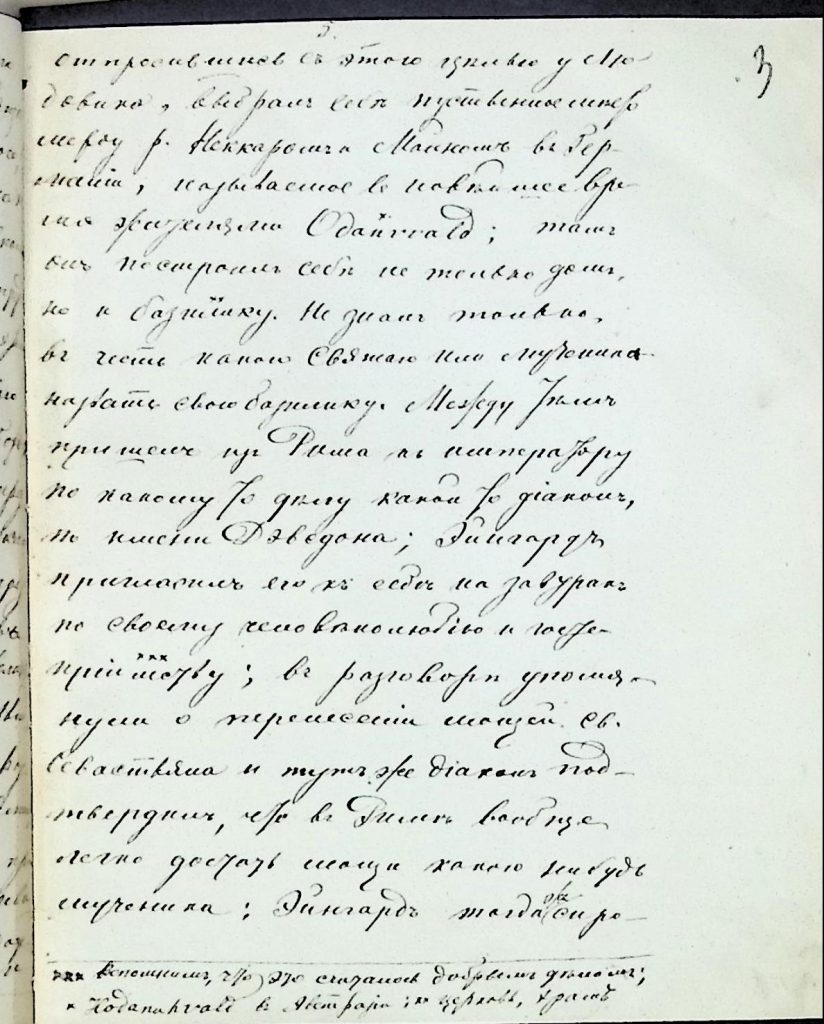 5.
отпросившись съ этого цѣлью у Лю-
довика, выбралъ себѣ пустынное мѣсто
между р. Неккаромъ и Майномъ въ Гер-
маніи, называемое въ новѣйшее вре-
мя жителями Odanwald; тамъ
онъ построилъ себѣ не только домъ,
но и базилику. Не зналъ только,
въ честь какого святаго или мученика
назвать свою базилику. Между тѣмъ
пришелъ изъ Рима къ императору
по какому то дѣлу какой то діаконъ,
по имени Дэвсдона; Эйнгардъ
пригласилъ его къ себѣ на завтракъ
по своему человѣколюбію и госте-
пріимству ***; въ разговорѣ упомя-
нули о перенесеніи мощей св.
Севастьяна и тутъ же діаконъ под-
твердилъ, что въ Римѣ вообще
легко достать мощи какого нибудь
мученика; Эйнгардъ тогда спро-
*** вспомнимъ, что это считалось добрымъ дѣломъ;
* Hodanuhvald в Австразіи; ** церковь, храмъ
3